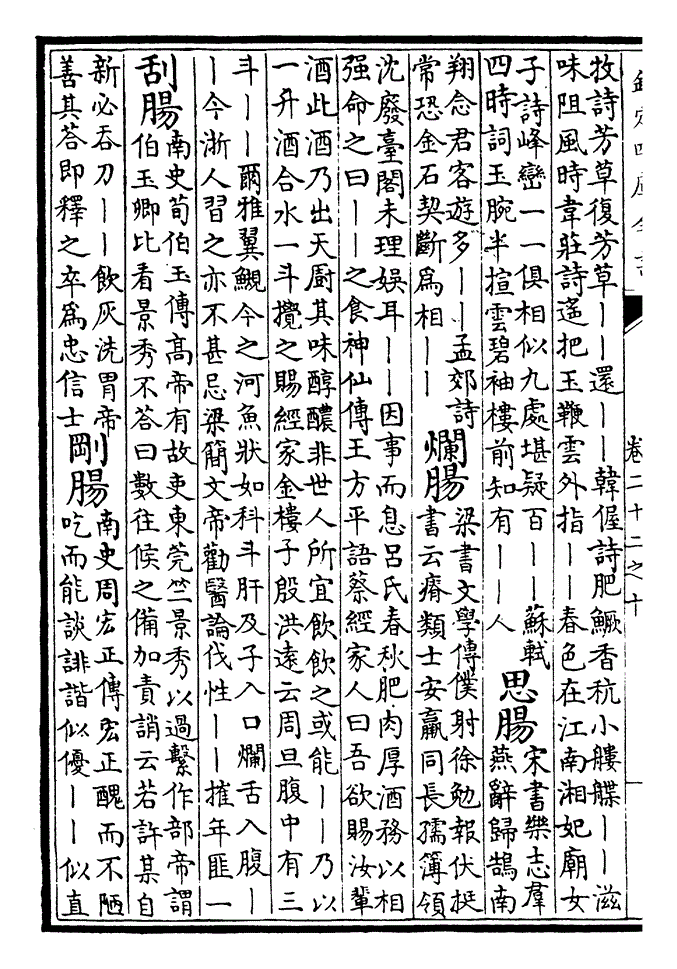 欽定四庫全書
卷二十二之十
牧詩芳草復芳草丨丨還丨丨韓偓詩肥鱖香秔小艛艓丨丨滋
味阻風時韋莊詩遙把玉鞭雲外指丨丨春色在江南湘妃廟女
子詩峰巒一一俱相似九處堪疑百丨丨蘇軾
四時詞玉腕半揎雲碧袖樓前知有丨丨人
思腸
宋書樂志羣
燕辭歸鵠南
翔念君客遊多丨丨孟郊詩
常恐金石契斷爲相丨丨
爛腸
梁書文學傳僕射徐勉報伏挺
書云瘠類士安羸同長孺簿領
沈廢臺閣未理娛耳丨丨因事而息呂氏春秋肥肉厚酒務以相
强命之曰丨丨之食神仙傳王方平語蔡經家人曰吾欲賜汝輩
酒此酒乃出天厨其味醇醲非世人所宜飲飲之或能丨丨乃以
一升酒合水一斗攪之賜經家金樓子殷洪遠云周旦腹中有三
斗丨丨爾雅翼鯢今之河魚狀如科斗肝及子入口爛舌入腹丨
丨今浙人習之亦不甚忌梁簡文帝勸醫論伐性丨丨摧年匪一
刮腸
南史荀伯玉傳高帝有故吏東莞竺景秀以過繫作部帝謂
伯玉卿比看景秀不答曰數往候之備加責誚云若許某自
新必吞刀丨丨飲灰洗胃帝
善其答即釋之卒爲忠信士
剛腸
南史周宏正傳宏正醜而不陋
吃而能談誹諧似優丨丨似直